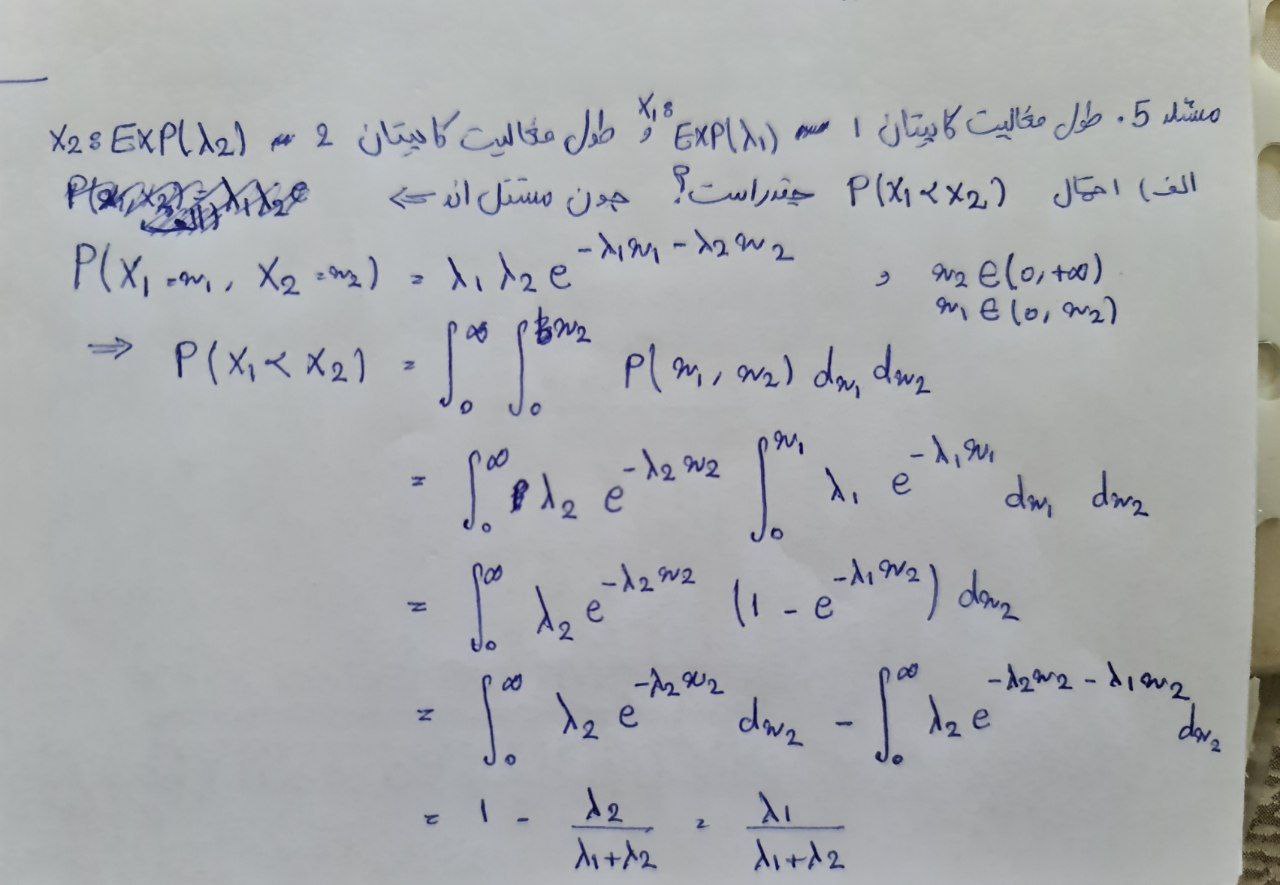 مسئله 5. طول فعالیت کاپیتان 1 ~ EXP(λ₁) :X₁ و طول فعالیت کاپیتان 2 ~ X₂: EXP(λ₂)
الف) احتمال P(X₁ < X₂) چقدر است؟ چون مستقل اند ⇐
P(X₁ = x₁, X₂ = x₂) = λ₁ λ₂ e^(-λ₁x₁ - λ₂x₂) , x₂ ∈ (0, +∞)
x₁ ∈ (0, x₂)
⇒ P(X₁ < X₂) = ∫₀^∞ ∫₀^x₂ P(x₁, x₂) dx₁ dx₂
= ∫₀^∞ λ₂ e^(-λ₂x₂) ∫₀^x₁ λ₁ e^(-λ₁x₁) dx₁ dx₂
= ∫₀^∞ λ₂ e^(-λ₂x₂) (1 - e^(-λ₁x₂)) dx₂
= ∫₀^∞ λ₂ e^(-λ₂x₂) dx₂ - ∫₀^∞ λ₂ e^(-λ₂x₂ - λ₁x₂) dx₂
= 1 - λ₂/(λ₁+λ₂) = λ₁/(λ₁+λ₂)